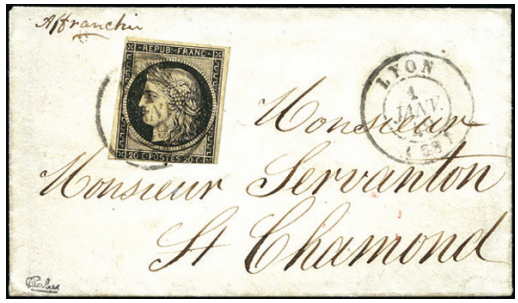 Affranchie
REPUB. FRANC.
20 C. POSTES 20 C.
LYON
1
JANV.
(68)
Monsieur
Monsieur Servanton
St Chamond